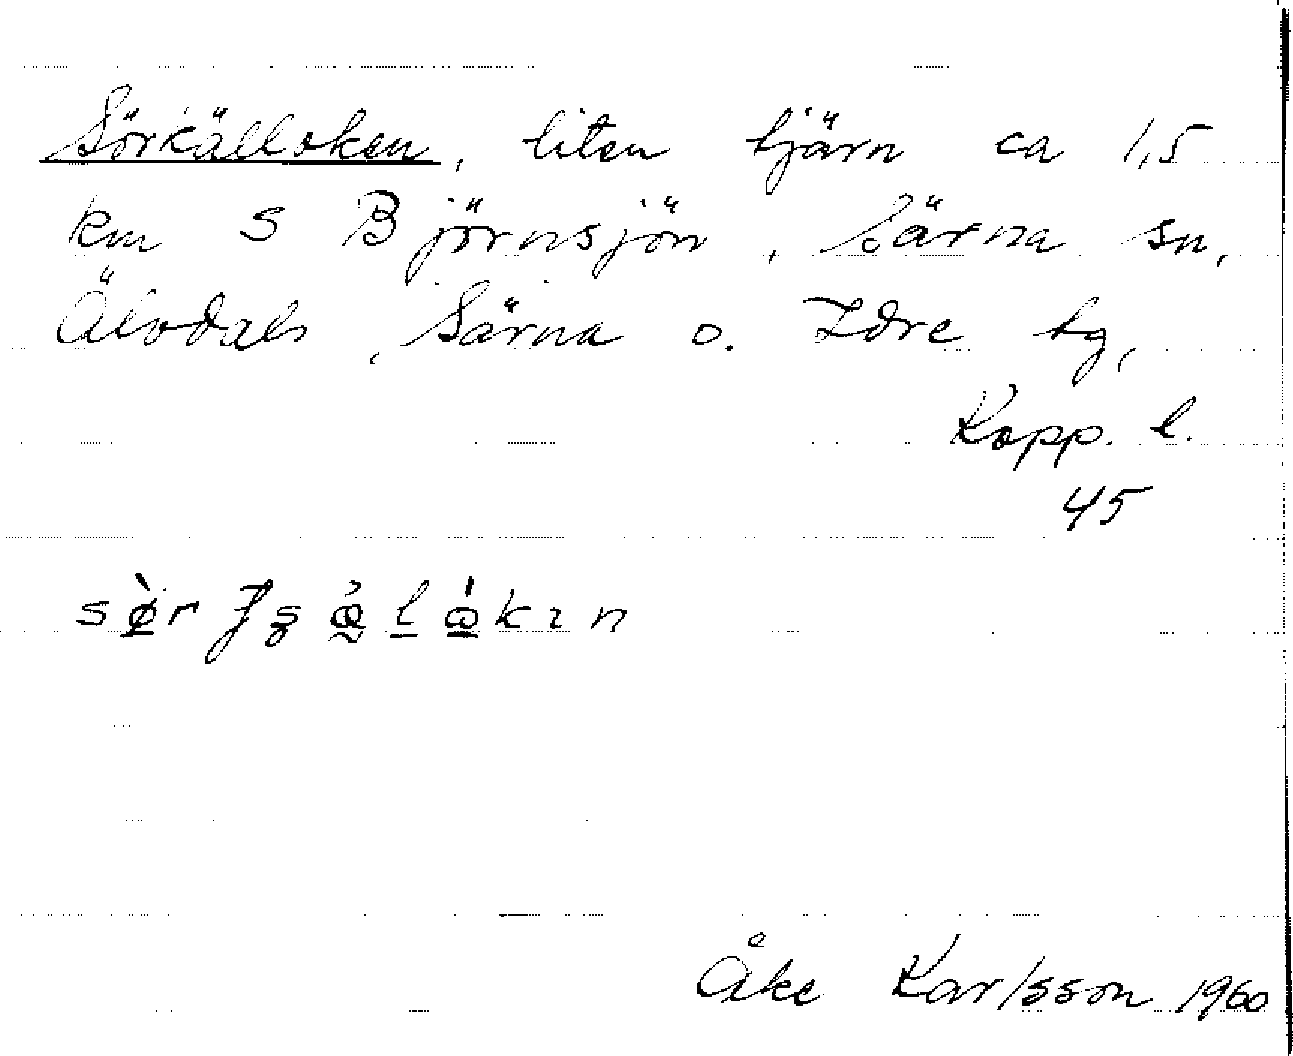 Sörkälloken, liten tjärn ca 1,5
km S Björnsjön, Särna sn,
Älvdals, Särna o. Idre tg,
Kopp. l.
45
Åke Karlsson 1960